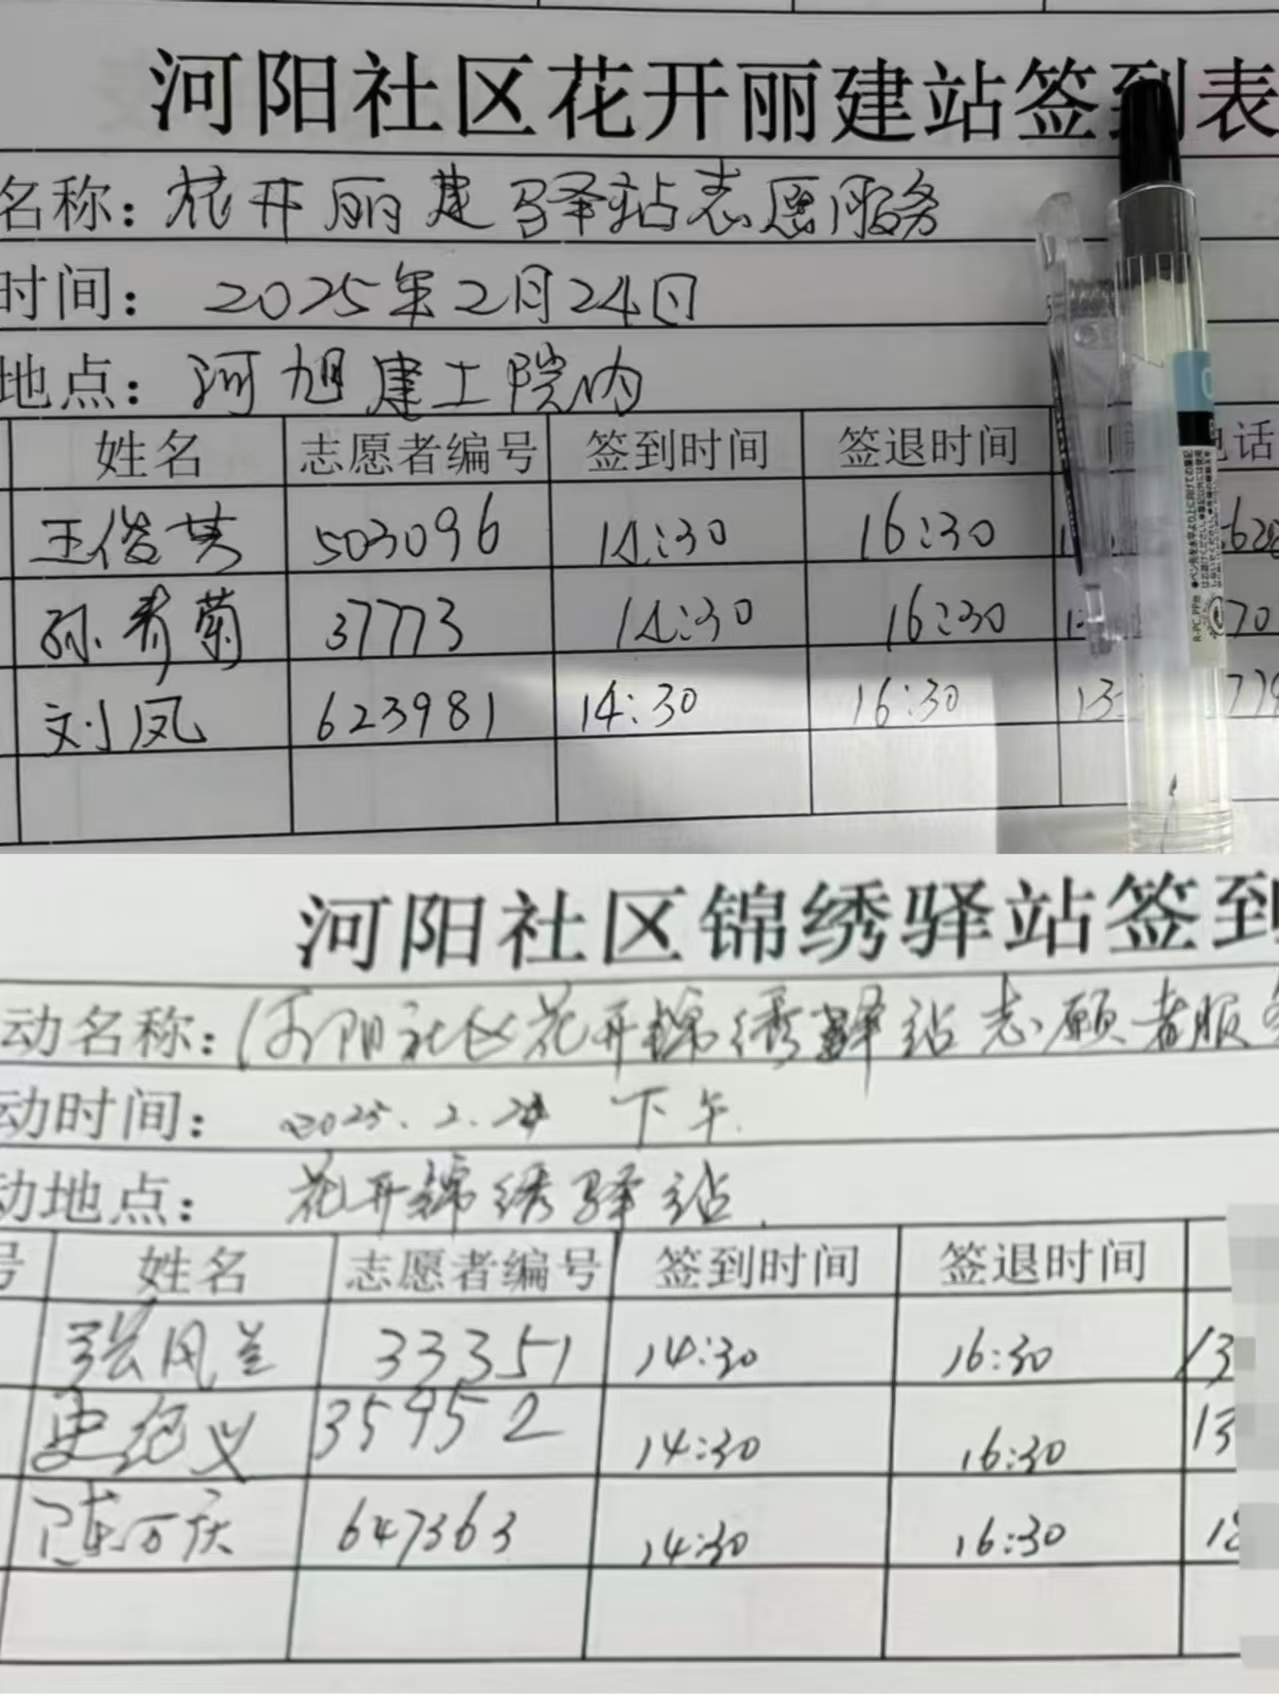 河阳社区花开丽建站签到表
名称：花开丽建驿站志愿服务
时间：2025年2月24日
地点：河旭建工院内
姓名 志愿者编号 签到时间 签退时间 电话
王俊芳 503096 14:30 16:30
孙秀菊 37773 14:30 16:30 70
刘凤 623981 14:30 16:30 13 779
R-PC, PPe
河阳社区锦绣驿站签到
动名称：河阳社区花开锦绣驿站志愿者服务
动时间：2025.2.24 下午
动地点：花开锦绣驿站
号 姓名 志愿者编号 签到时间 签退时间
张凤兰 33351 14:30 16:30 13
史纪义 35952 14:30 16:30 13
陈万庆 647363 14:30 16:30 18